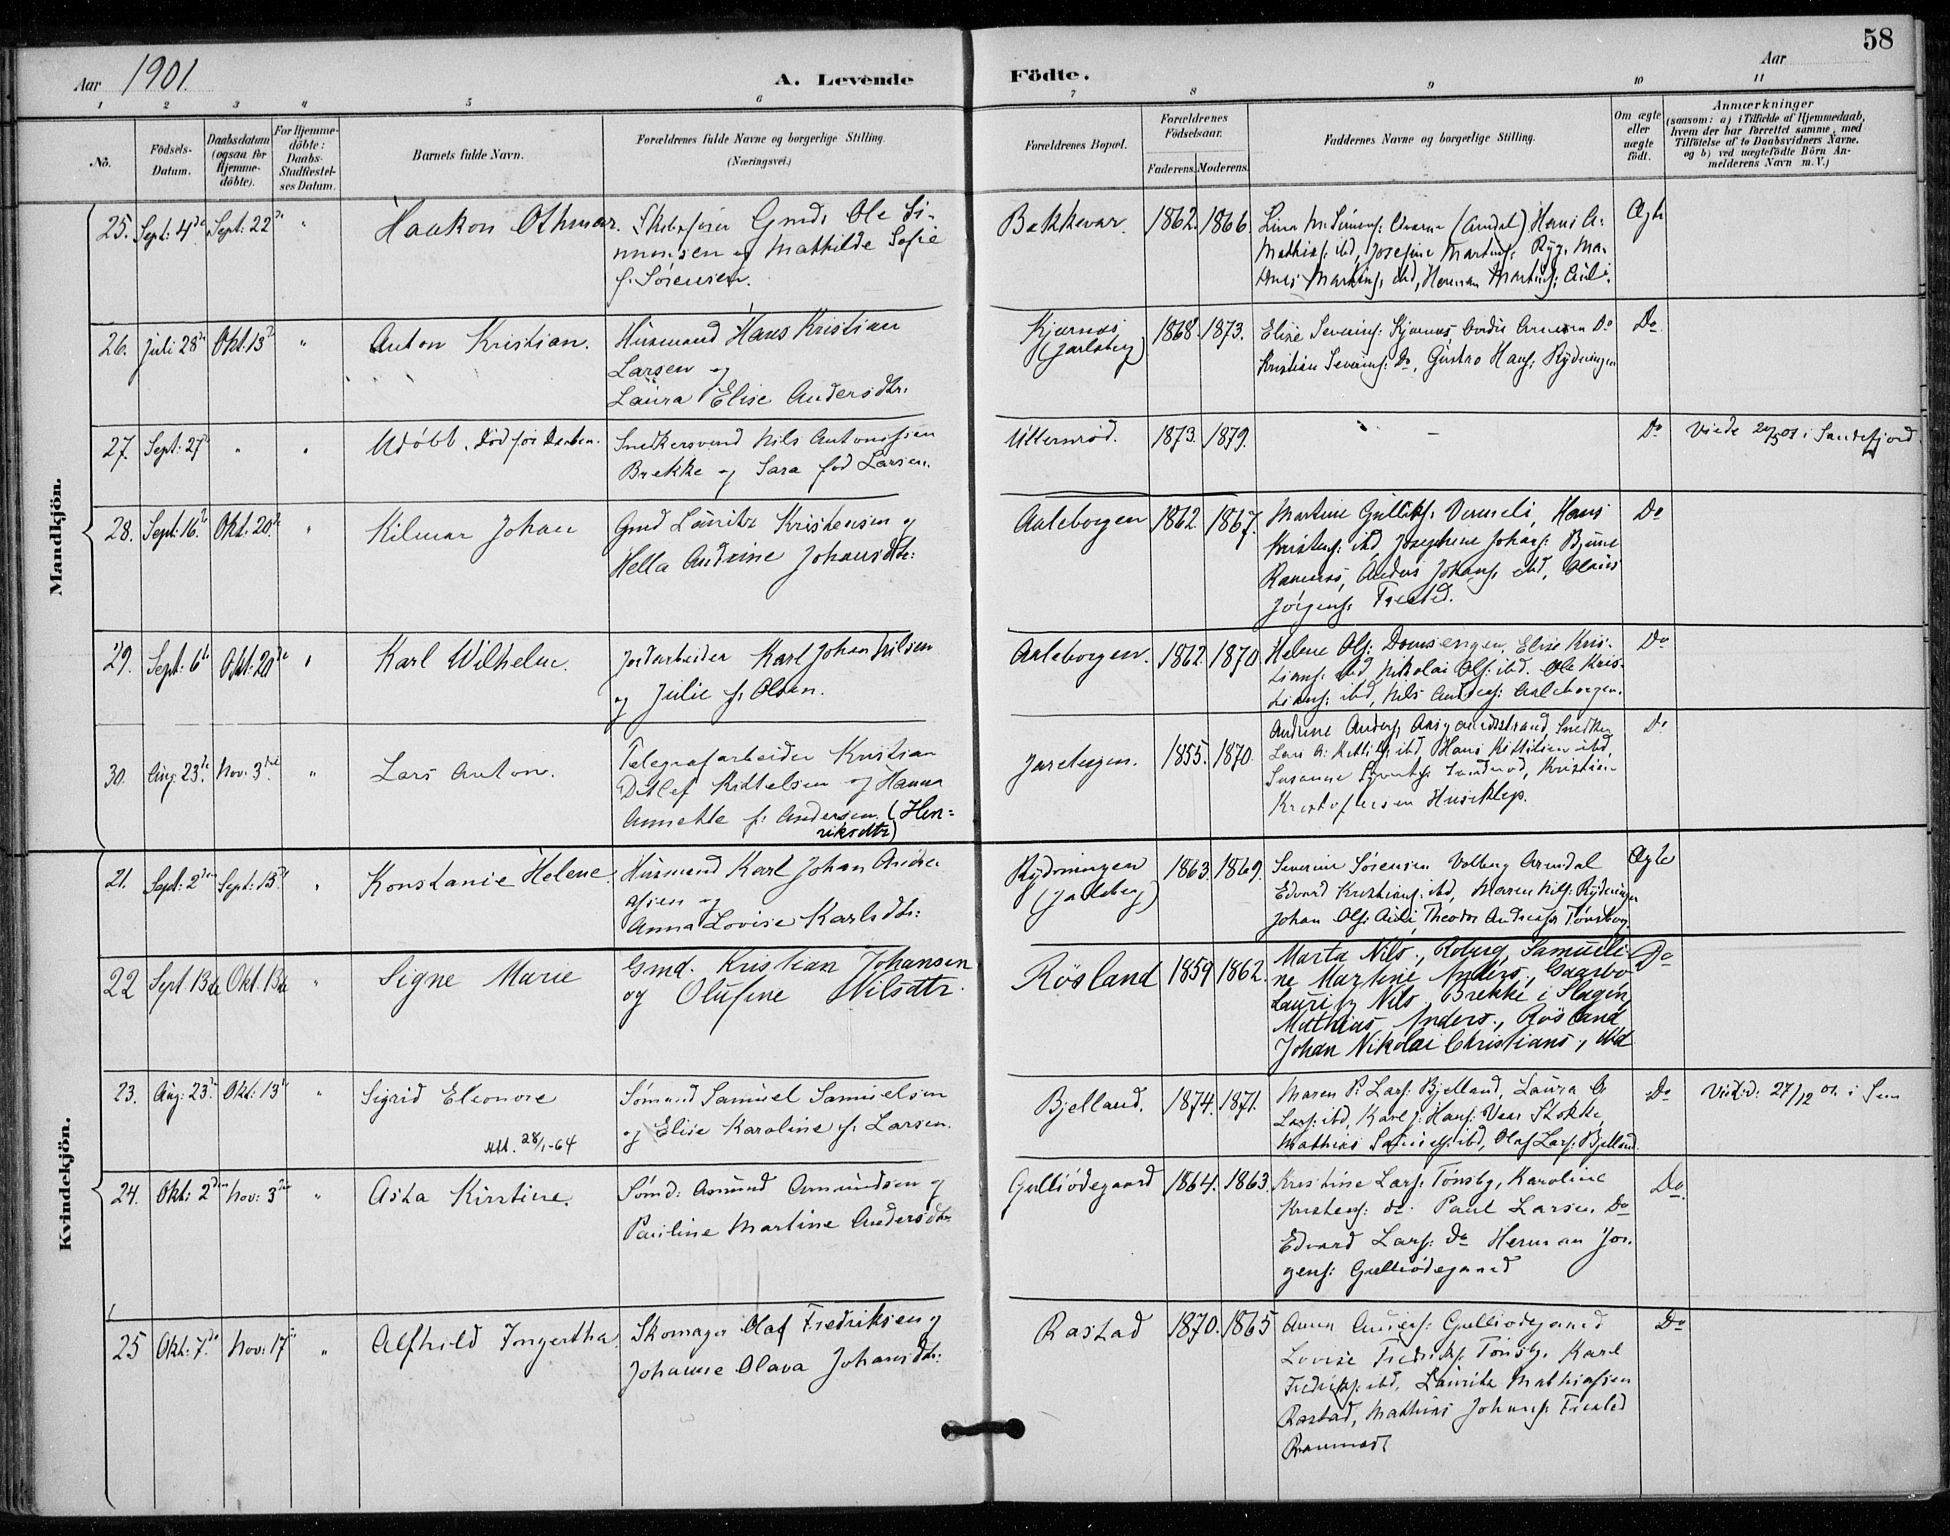 58
Aar 1901.
A. Levende Födte.
Aar
1 2 3 4 5 6 7 8 9 10 11
No.
Födsels-Datum.
Daabsdatum (ogsaa for Hjemme-döbte).
For Hjemme-döbte: Daabs-Stadfæstel-ses Datum.
Barnets fulde Navn.
Forældrenes fulde Navne og borgerlige Stilling. (Næringsvei.)
Forældrenes Bopæl.
Forældrenes Födselsaar.
Faderens. Moderens.
Faddernes Navne og borgerlige Stilling.
Om ægte eller uægte födt.
Anmærkninger
(saasom: a) i Tilfælde af Hjemmedaab,
hvem der har forrettet samme, med
Tilföielse af to Daabsvidners Navne.
og b) ved uægtefödte Börn An-
melderens Navn m. V.)
Mandkjön.
25. Sept: 4de Sept: 22de " Haakon Othmar. Skibsfører Gmd. Ole Si-
monsen og Mathilde Sofie
f. Sørensen.
Bakkevar. 1862. 1866.
Mathias: ibd, Josefine Martins: Ryg, Ma-
Martins: ibd, Herman Martins: Auli.
Ægte
26. Juli 28de Okt. 13de " Anton Kristian. Husmand Hans Kristian
Larsen og
Laura Elise Andersdtr.
Kjærnes (Jarlsberg) 1868. 1873. Elise Severins: Kjærnes, Arnesen Do
Kristian Severins: Do, Gustav Hans: Rydningen
Do
27. Sept: 27de " " Udøbt. Død før Daaben. Snedkersvend Nils Antonssen
Brekke og Sara fød Larsen.
Uttersrød. 1873. 1879. - Do Viede 20/5 01 i Sandefjord.
28. Sept: 16de Okt: 20de " Kilmar Johan Gmd Lauritz Kristensen og
Hella Andrine Johansdtr:
Aaleborgen 1862. 1867. Martine Gulliks: Vermeli, Hans
Kristens: ibd, Josephine Johans: Bjune
Ramnæs, Anders Johans: ibd, Olaus
Jörgens: Trested.
Do
29. Sept: 6te Okt: 20de " Karl Wilhelm. Jordarbeider Karl Johan Nilsen
og Julie f. Olsen.
Aaleborgen. 1862. 1870. Helene Ols: Elise Kris-
tians: ibd, Nikolai Ols: ibd. Ole Kris-
tians: ibd, Nils Andreas: Aaleborgen.
Do
30. Aug: 23de Nov: 3die " Lars Anton. Telegrafarbeider Kristian
Ditlef Kittelsen og Hanna
Annette f. Andersen. (Hen-
riksdtr)
Jareteigen. 1855. 1870. Andrine Anders: Aasgaardstrand, Snedker
Lars A. Kittils: ibd, Hans Kittilsen ibd,
Susanne Kristian
Kristoffersen Huseklep.
Do
Kvindekjön.
21. Sept: 2den Sept: 15de " Konstanse Helene. Husmand Karl Johan Andre-
assen og
Anna Lovise Karlsdtr:
Rydningen (Jarlsberg) 1863. 1869. Severine Sørensen Volberg Arendal
Edvard Kristians: ibd, Maren Nils: Rydningen
Johan Ols: Auli, Theodor Andreas: Tønsberg.
Ægte
22 Sept 13de Okt. 13de " Signe Marie Gmd. Kristian Johansen
og Olufine Nilsdtr.
Røsland 1859 1862. Marta Nils., Roberg, Samueli-
ne Martine Anders.,
Lauritz Nils. Brekke i Slagen,
Mathias Anders., Røsland
Johan Nikolai Christians., ibd
Do
23. Aug: 23de Okt: 13de " Sigrid Eleonore
Utt. 28/1-64
Sømand Samuel Samuelsen
og Elise Karoline f. Larsen.
Bjelland. 1874. 1871. Maren P. Lars: Bjelland, Laura
Lars: ibd, Karl J. Hans: Vear Stokke,
Mathias Samuels: ibd, Olaf Lars: Bjelland.
Do 27/12 01. i Sem
24. Okt: 2den Nov: 3die " Asta Kirstine. Sømd: Asmund Asmundsen og
Pauline Martine Andersdtr.
Gulliødegaard 1864. 1863. Kristine Lars: Tønsbg, Karoline
Kristens: do. Paul Larsen. Do
Edvard Lars: Do Herman Jør-
gens: Gulliødegaard
Do.
25 Okt: 7de Nov: 17de " Alfhild Ingertha. Skomager Olaf Fredriksen og
Johanne Olava Johansdtr:
Rastad 1870. 1865 Anna Anders: Gulliødegaard
Lovise Fredriks: Tönsbg. Karl
Fredriks: ibd, Lauritz Mathiassen
Rastad, Mathias Johans: Trested
Ramnæs.
Do